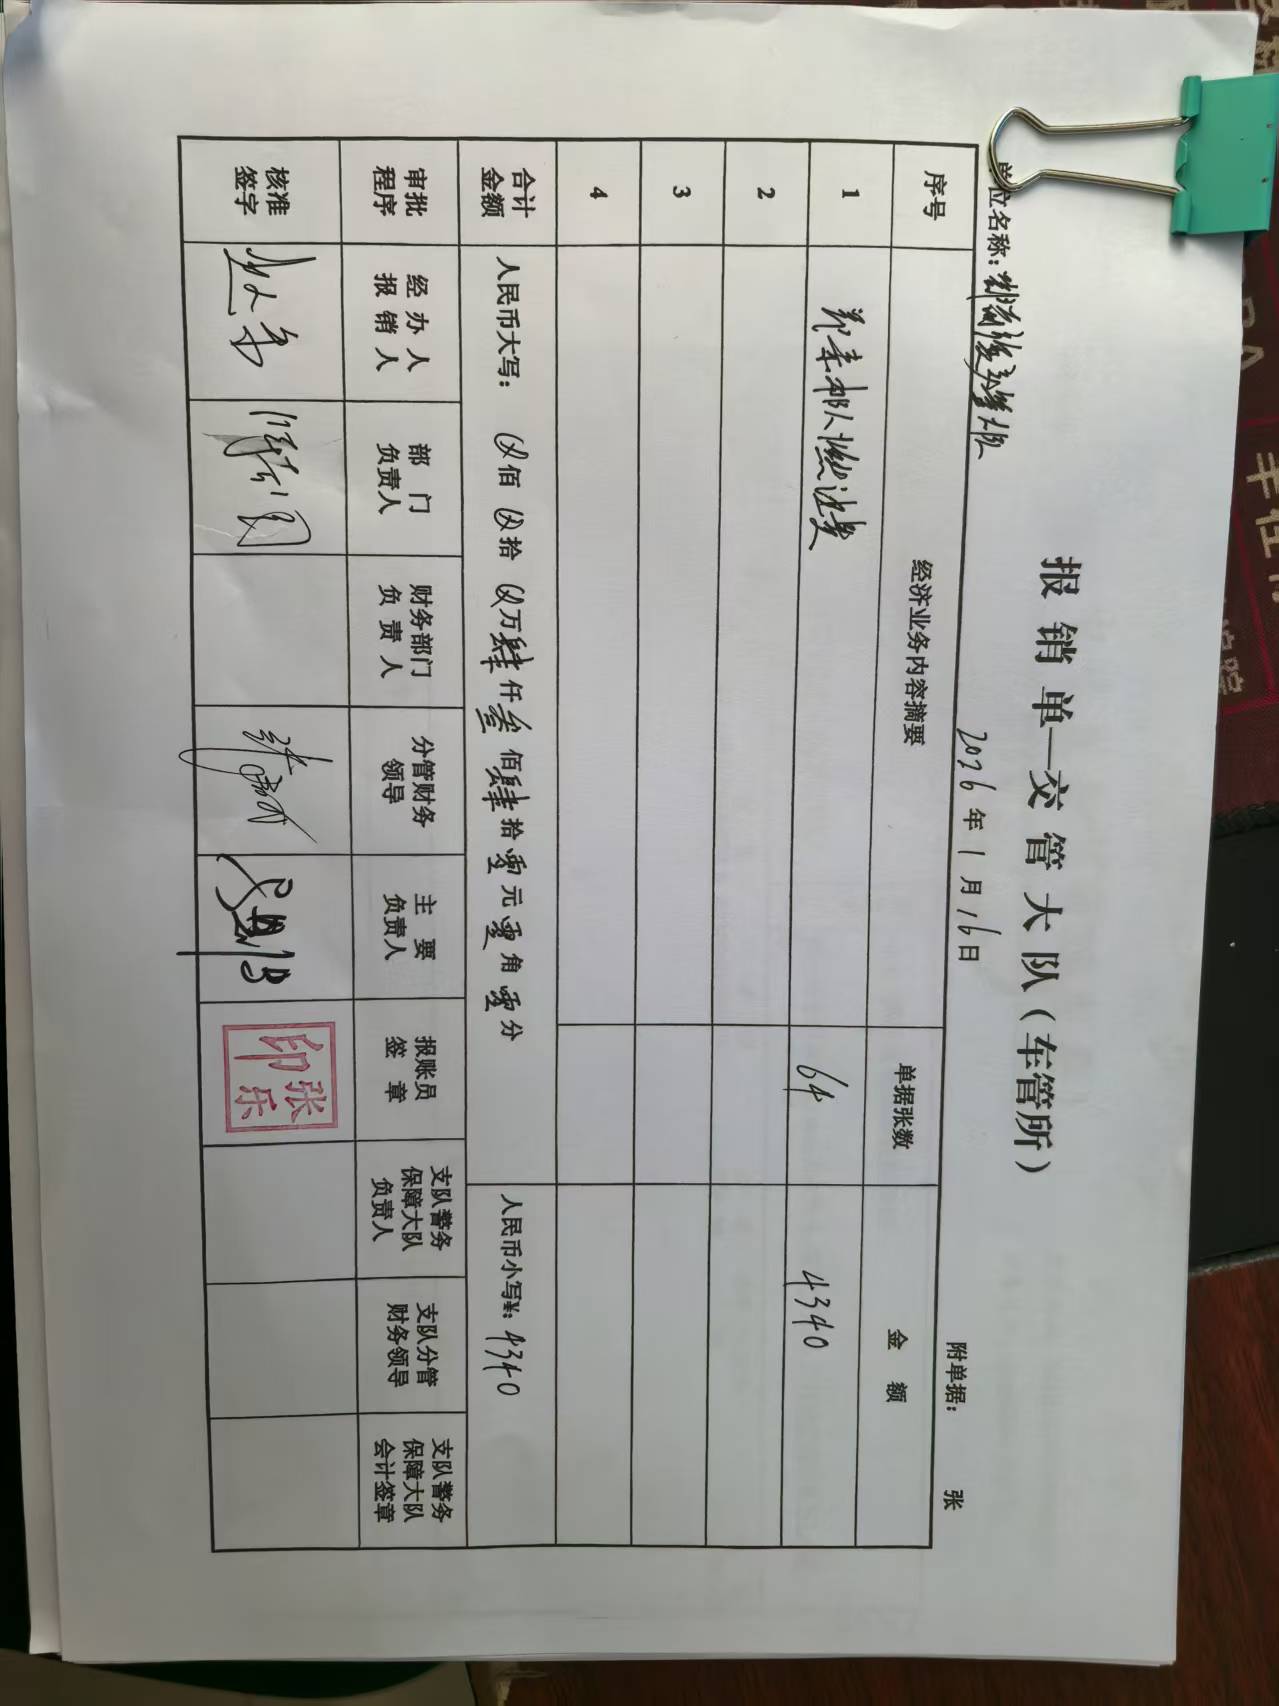 报销单—交管大队（车管所）
单位名称：
2026年1月16日
附单据： 张
序号 经济业务内容摘要 单据张数 金额
1 燃油费 64 4340
2
3
4
合计金额 人民币大写： 佰 拾 万肆仟叁佰肆拾零元零角零分 人民币小写¥：4340
审批程序 经办人报销人 部门负责人 财务部门负责人 分管财务领导 主要负责人 报账员签章 支队警务保障大队负责人 支队分管财务领导 支队警务保障大队会计签章
核准签字
张乐印